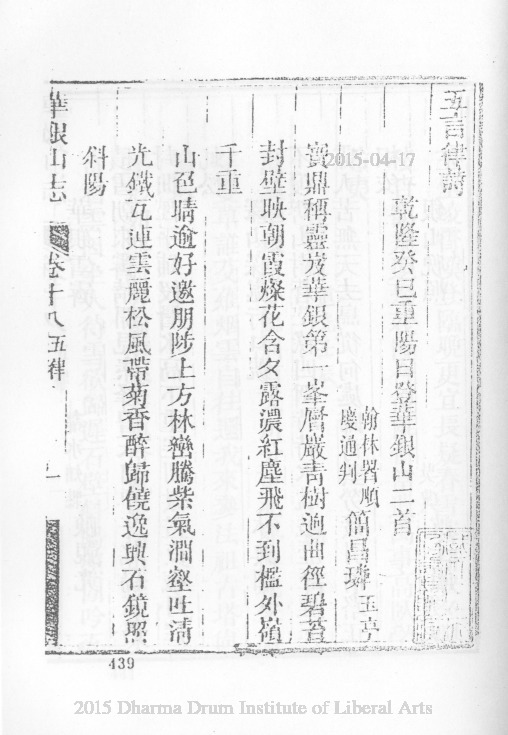 五言律詩
乾隆癸巳重陽日登華銀山二首
翰林署順
慶通判 簡昌璘 玉亭
寶鼎稱靈岌華銀第一峯層巖青樹迥曲徑碧苔
封壁映朝霞燦花含夕露濃紅塵飛不到檻外嶺
千重
山色晴逾好邀朋陟上方林巒騰紫氣澗壑吐清
光鐵瓦連雲麗松風帶菊香醉歸饒逸興石鏡照
斜陽
華銀山志 卷十八 五律 一
439
2015-04-17
2015 Dharma Drum Institute of Liberal Arts